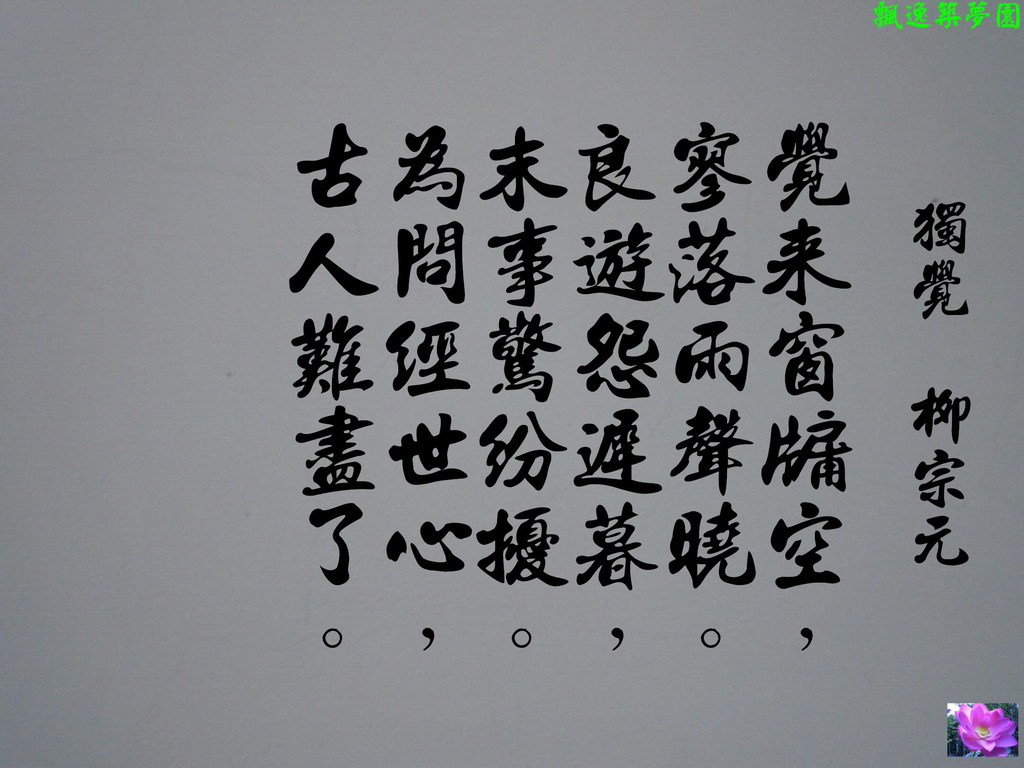 飄逸築夢園
獨覺　柳宗元
覺来窗牗空，
寥落雨聲曉。
良遊怨遲暮，
末事驚紛擾。
為問經世心，
古人難盡了。